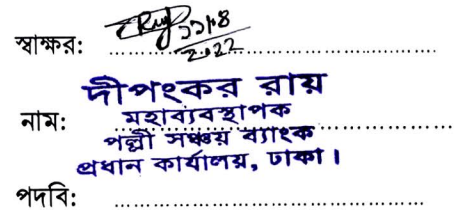 স্বাক্ষর: ........................................
দীপংকর রায়
মহাব্যবস্থাপক
নাম: ........................................
পল্লী সঞ্চয় ব্যাংক
প্রধান কার্যালয়, ঢাকা।
পদবি: ........................................